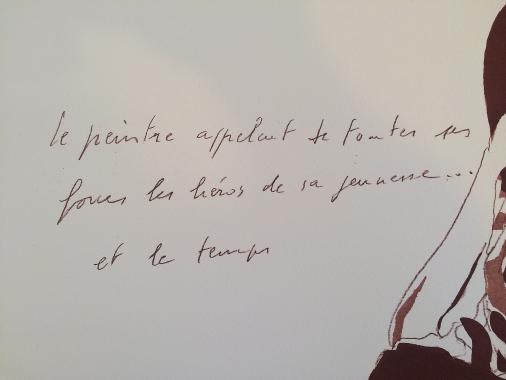 le peintre appelant de toutes ses
forces les héros de sa jeunesse...
et le temps